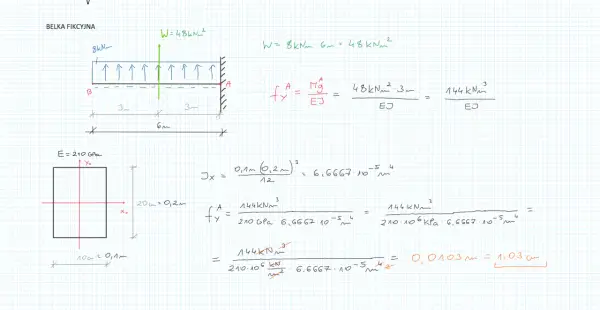 BELKA FIKCYJNA
W = 48 kNm²
8kNm
B
A
3m
3m
6m
W = 8kNm · 6m = 48 kNm²
f_y^A = M_g^A / EJ = 48kNm² · 3m / EJ = 144kNm³ / EJ
E = 210 GPa
y₀
x₀
20cm = 0,2m
10cm = 0,1m
J_x = 0,1m (0,2m)³ / 12 = 6,6667 · 10⁻⁵ m⁴
f_y^A = 144kNm³ / 210 GPa · 6,6667 · 10⁻⁵ m⁴ = 144kNm³ / 210 · 10⁶ kPa · 6,6667 · 10⁻⁵ m⁴ =
= 144kNm³ / 210 · 10⁶ kN/m² · 6,6667 · 10⁻⁵ m⁴ = 0,0103 m = 1,03 cm